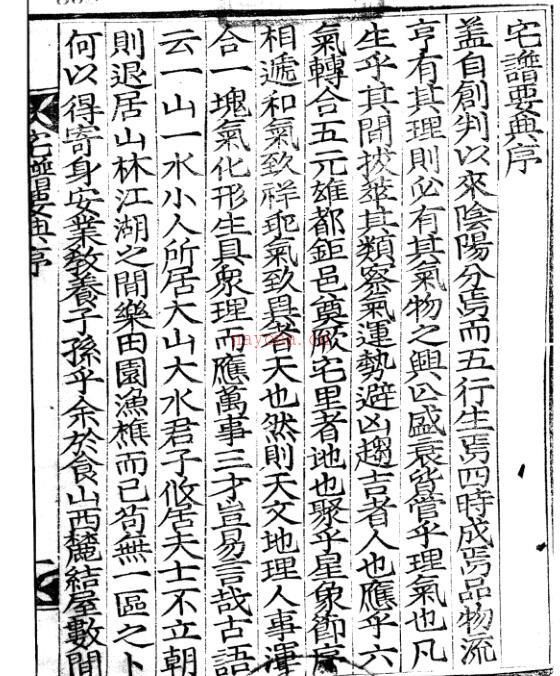 宅譜要典序
盖自創判以來陰陽分焉而五行生焉四時成焉品物流
亨有其理則必有其氣物之興亾盛衰皆管乎理氣也凡
生乎其間拔萃其類察氣運勢避凶趨吉者人也應乎六
氣轉合五元雄都鉅邑奠厥宅里者地也聚乎星象節序
相遞和氣致祥乖氣致異者天也然則天文地理人事渾
合一塊氣化形生具衆理而應萬事三才豈易言哉古語
云一山一水小人所居大山大水君子攸居夫士不立朝
則退居山林江湖之間樂田園漁樵而已苟無一區之卜
何以得寄身安業敎養子孫乎余於食山西麓結屋數間
宅譜要典序